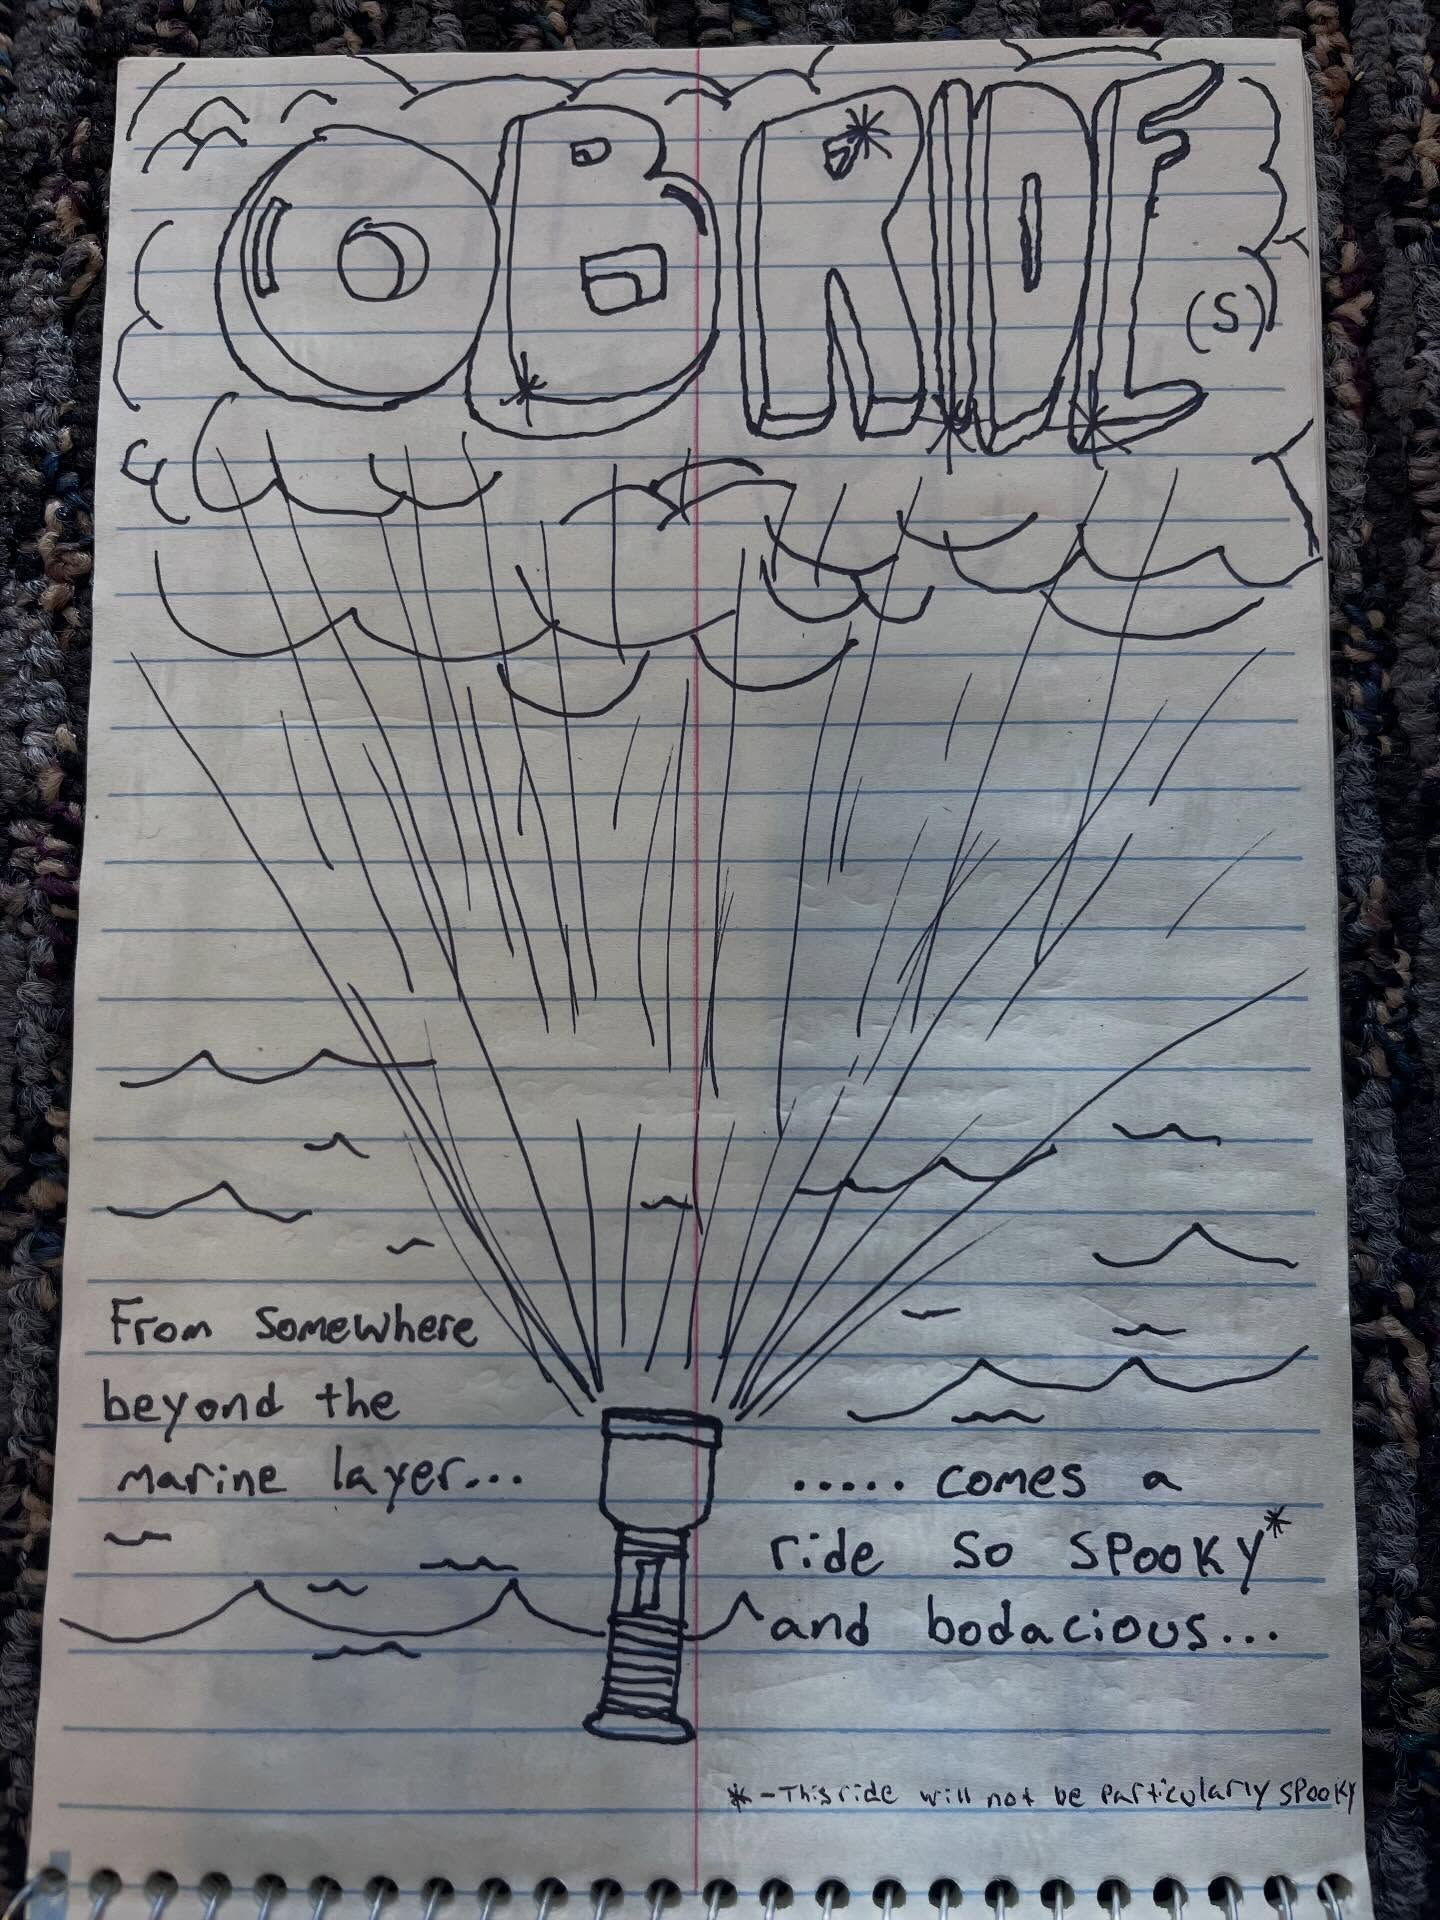 OB RIDE
(S)
From Somewhere
beyond the
marine layer...
..... comes a
ride so SPOOKY*
and bodacious...
* - This ride will not be particularly spooky